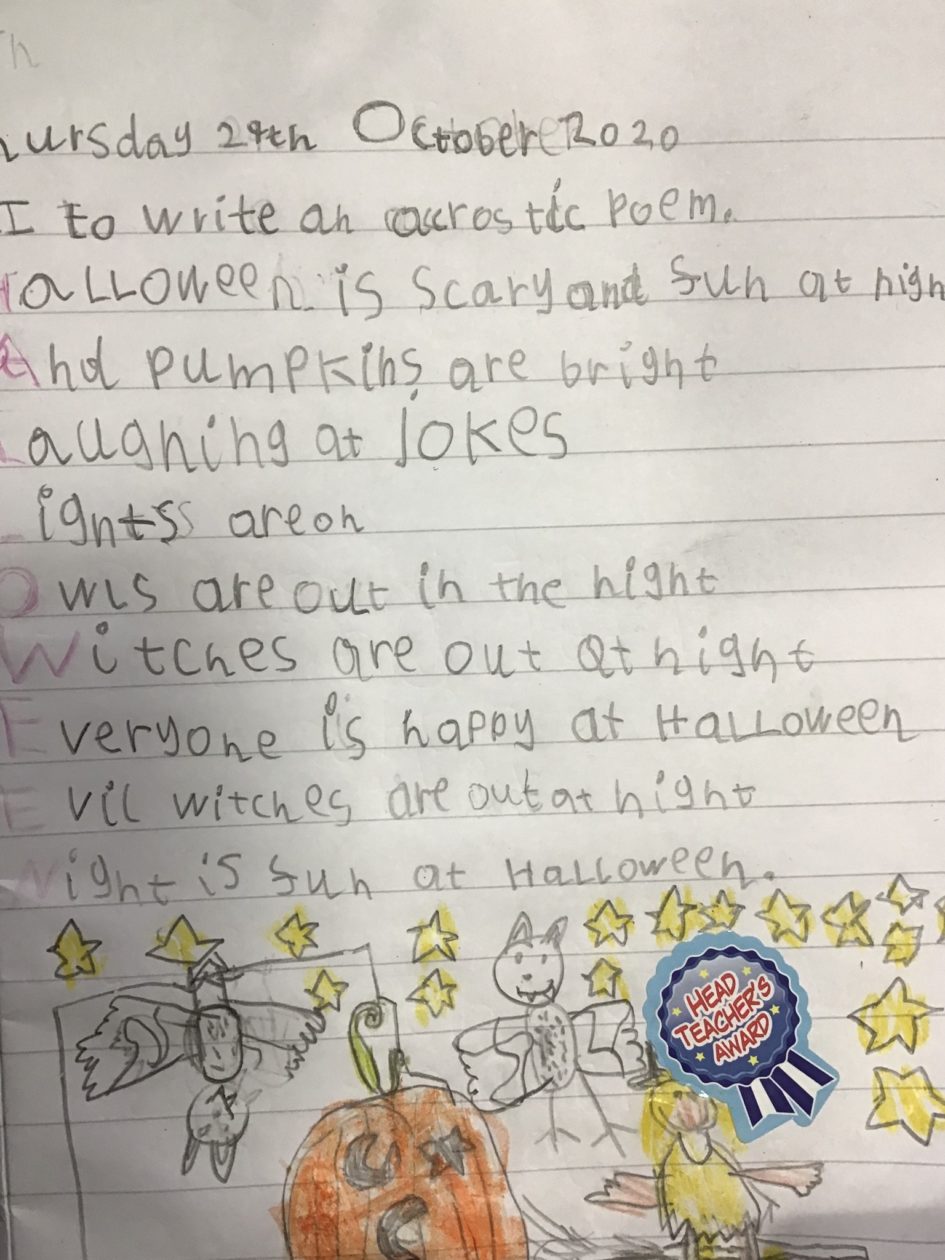 hursday 29th October 2020
I to write an acrostic poem.
Halloween is scary and fun at nigh
And pumpkins are bright
Laughing at jokes
Lightss are on
Owls are out in the night
Witches are out at night
Everyone is happy at Halloween
Evil witches are out at night
Night is fun at Halloween.
HEAD
TEACHER'S
AWARD